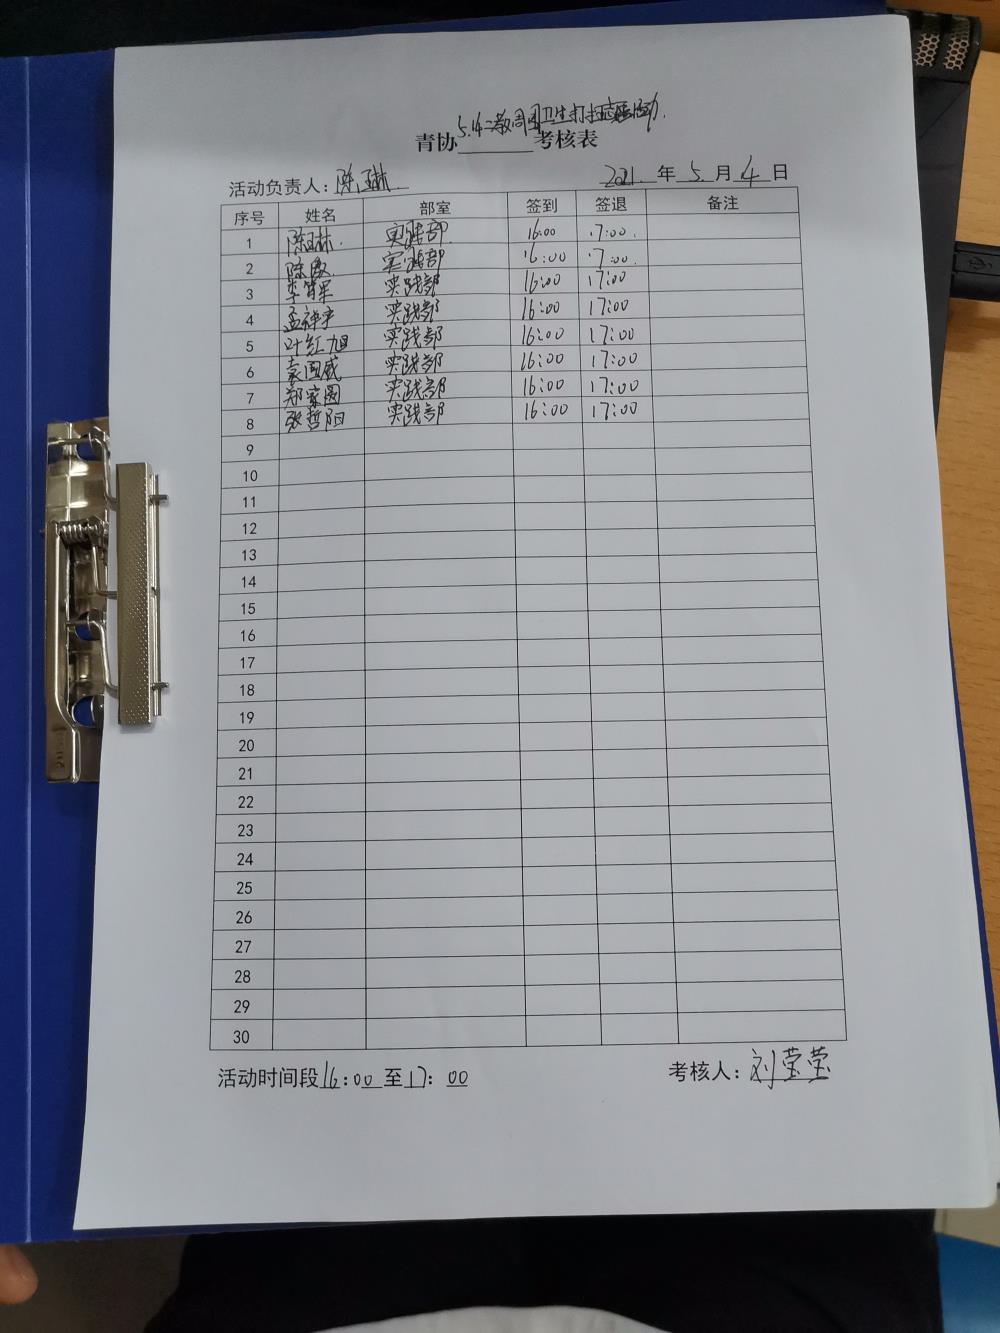 5.4二教周围卫生打扫志愿活动
青协______考核表
活动负责人：陈琳
2021 年 5 月 4 日
序号 姓名 部室 签到 签退 备注
1 陈琳 实践部 16:00 17:00
2 陈 实践部 16:00 17:00
3 实践部 16:00 17:00
4 孟祥宇 实践部 16:00 17:00
5 叶红旭 实践部 16:00 17:00
6 袁国威 实践部 16:00 17:00
7 郑家园 实践部 16:00 17:00
8 张哲阳 实践部 16:00 17:00
9
10
11
12
13
14
15
16
17
18
19
20
21
22
23
24
25
26
27
28
29
30
活动时间段16:00至17:00
考核人：刘莹莹